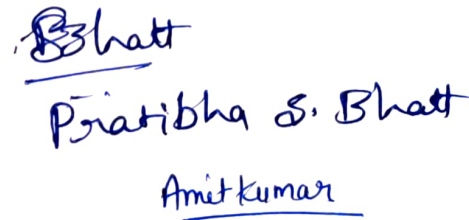 Bhatt
Pratibha S. Bhatt
Amit kumar